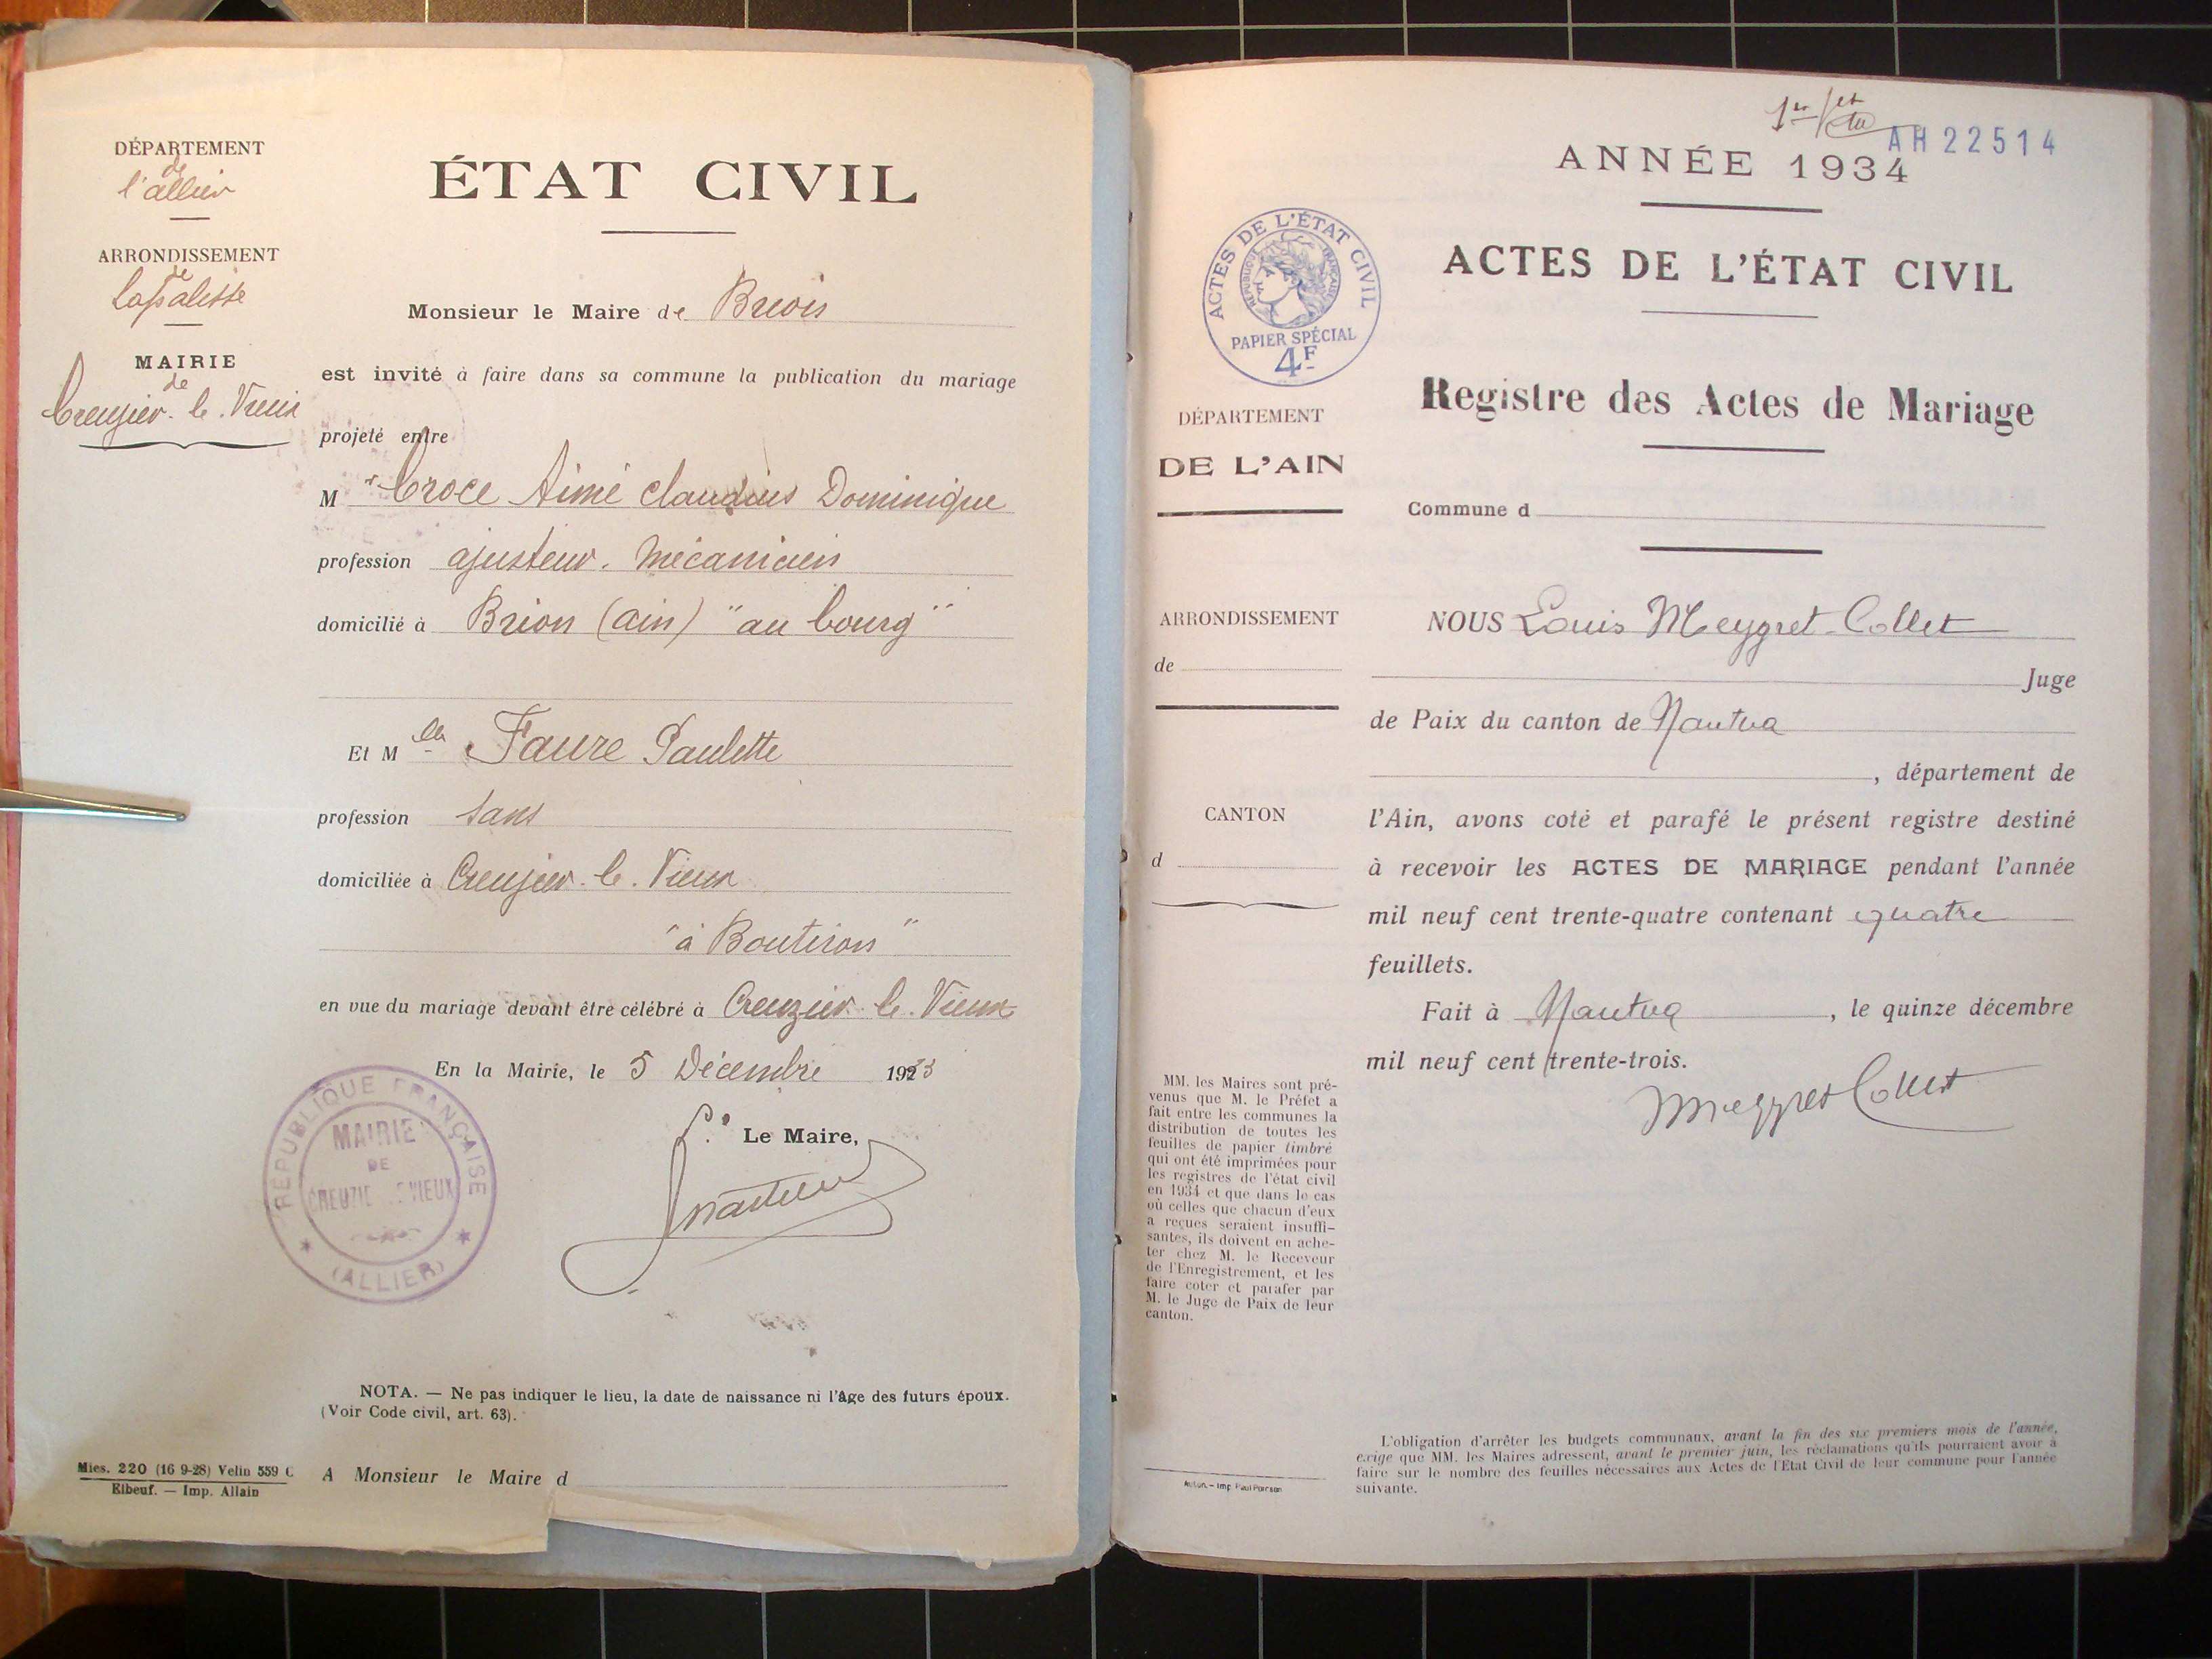 DÉPARTEMENT
de
l'allier
ARRONDISSEMENT
de
lapalisse
MAIRIE
de
Creuzier-le-Vieux
ÉTAT CIVIL
Monsieur le Maire de Brion
est invité à faire dans sa commune la publication du mariage
projeté entre
Mr Croce Aimé Claudius Dominique
profession ajusteur-mécanicien
domicilié à Brion (ain) "au bourg"
Et Mlle Faure Paulette
profession sans
domiciliée à Creuzier-le-Vieux
"à Boutiron"
en vue du mariage devant être célébré à Creuzier-le-Vieux
En la Mairie, le 5 Décembre 1933
Le Maire,
RÉPUBLIQUE FRANÇAISE
MAIRIE
DE
CREUZIE LE VIEUX
(ALLIER)
NOTA. — Ne pas indiquer le lieu, la date de naissance ni l'âge des futurs époux.
(Voir Code civil, art. 63).
Mies. 220 (16 9-28) Velin 559 C
Elbeuf. — Imp. Allain
A Monsieur le Maire d
1er
AH22514
ANNÉE 1934
ACTES DE L'ÉTAT CIVIL
RÉPUBLIQUE FRANÇAISE
PAPIER SPÉCIAL
4F
ACTES DE L'ÉTAT CIVIL
Registre des Actes de Mariage
DÉPARTEMENT
DE L'AIN
Commune d
ARRONDISSEMENT
de
CANTON
d
NOUS Louis Meygret-Collet
Juge
de Paix du canton de Nantua
, département de
l'Ain, avons coté et parafé le présent registre destiné
à recevoir les ACTES DE MARIAGE pendant l'année
mil neuf cent trente-quatre contenant quatre
feuillets.
Fait à Nantua, le quinze décembre
mil neuf cent trente-trois.
Meygret Collet
MM. les Maires sont pré-
venus que M. le Préfet a
fait entre les communes la
distribution de toutes les
feuilles de papier timbré
qui ont été imprimées pour
les registres de l'état civil
en 1934 et que dans le cas
où celles que chacun d'eux
a reçues seraient insuffi-
santes, ils doivent en ache-
ter chez M. le Receveur
de l'Enregistrement, et les
faire coter et parafer par
M. le Juge de Paix de leur
canton.
Imp. Paul Poirson
L'obligation d'arrêter les budgets communaux, avant la fin des six premiers mois de l'année,
exige que MM. les Maires adressent, avant le premier juin, les réclamations qu'ils pourraient avoir à
faire sur le nombre des feuilles nécessaires aux Actes de l'Etat Civil de leur commune pour l'année
suivante.